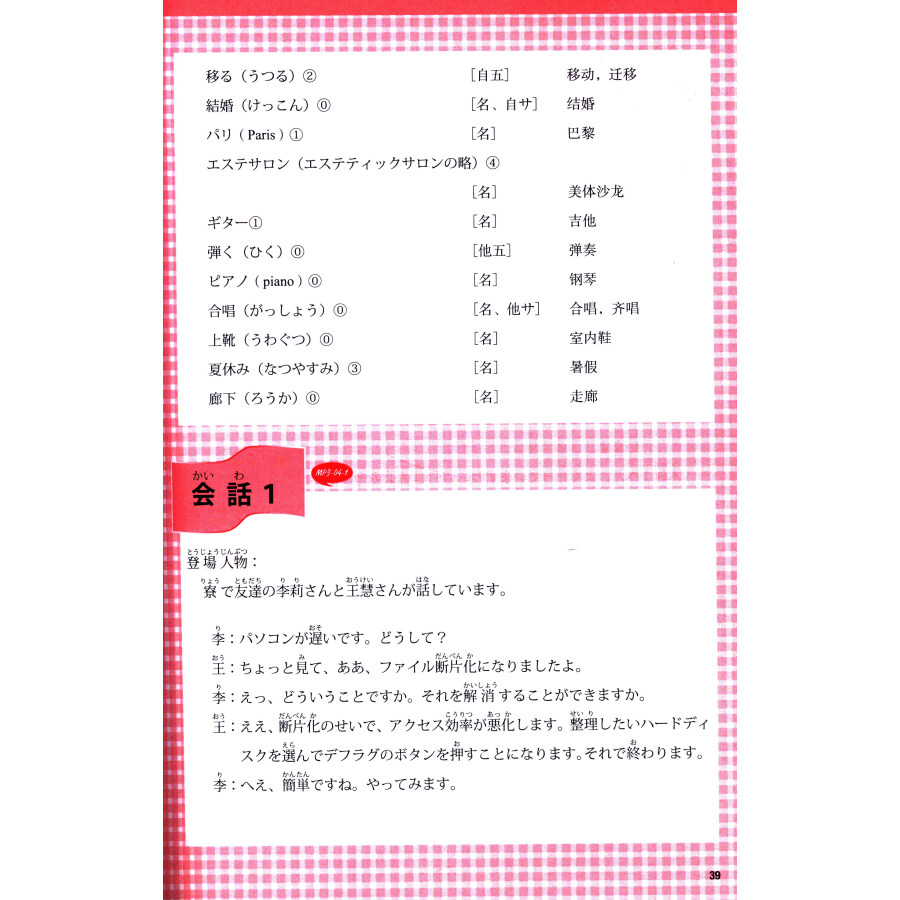 移る（うつる）② ［自五］ 移动，迁移
結婚（けっこん）⓪ ［名、自サ］ 结婚
パリ（Paris）① ［名］ 巴黎
エステサロン（エステティックサロンの略）④
［名］ 美体沙龙
ギター① ［名］ 吉他
弾く（ひく）⓪ ［他五］ 弹奏
ピアノ（piano）⓪ ［名］ 钢琴
合唱（がっしょう）⓪ ［名、他サ］ 合唱，齐唱
上靴（うわぐつ）⓪ ［名］ 室内鞋
夏休み（なつやすみ）③ ［名］ 暑假
廊下（ろうか）⓪ ［名］ 走廊
かい わ
会話 1
MP3-04-1
とうじょうじんぶつ
登場人物：
りょう ともだち り り おうけい はな
寮で友達の李莉さんと王慧さんが話しています。
り おそ
李：パソコンが遅いです。どうして？
おう み だんぺん か
王：ちょっと見て、ああ、ファイル断片化になりましたよ。
り かいしょう
李：えっ、どういうことですか。それを解消することができますか。
おう だんぺん か こうりつ あっ か せい り
王：ええ、断片化のせいで、アクセス効率が悪化します。整理したいハードディ
えら お お
スクを選んでデフラグのボタンを押すことになります。それで終わります。
り かんたん
李：へえ、簡単ですね。やってみます。
39